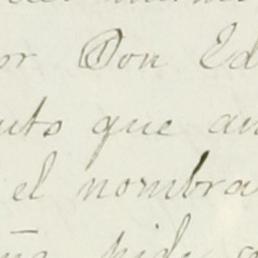 or Don Ed
uto que an
el nombra
pide